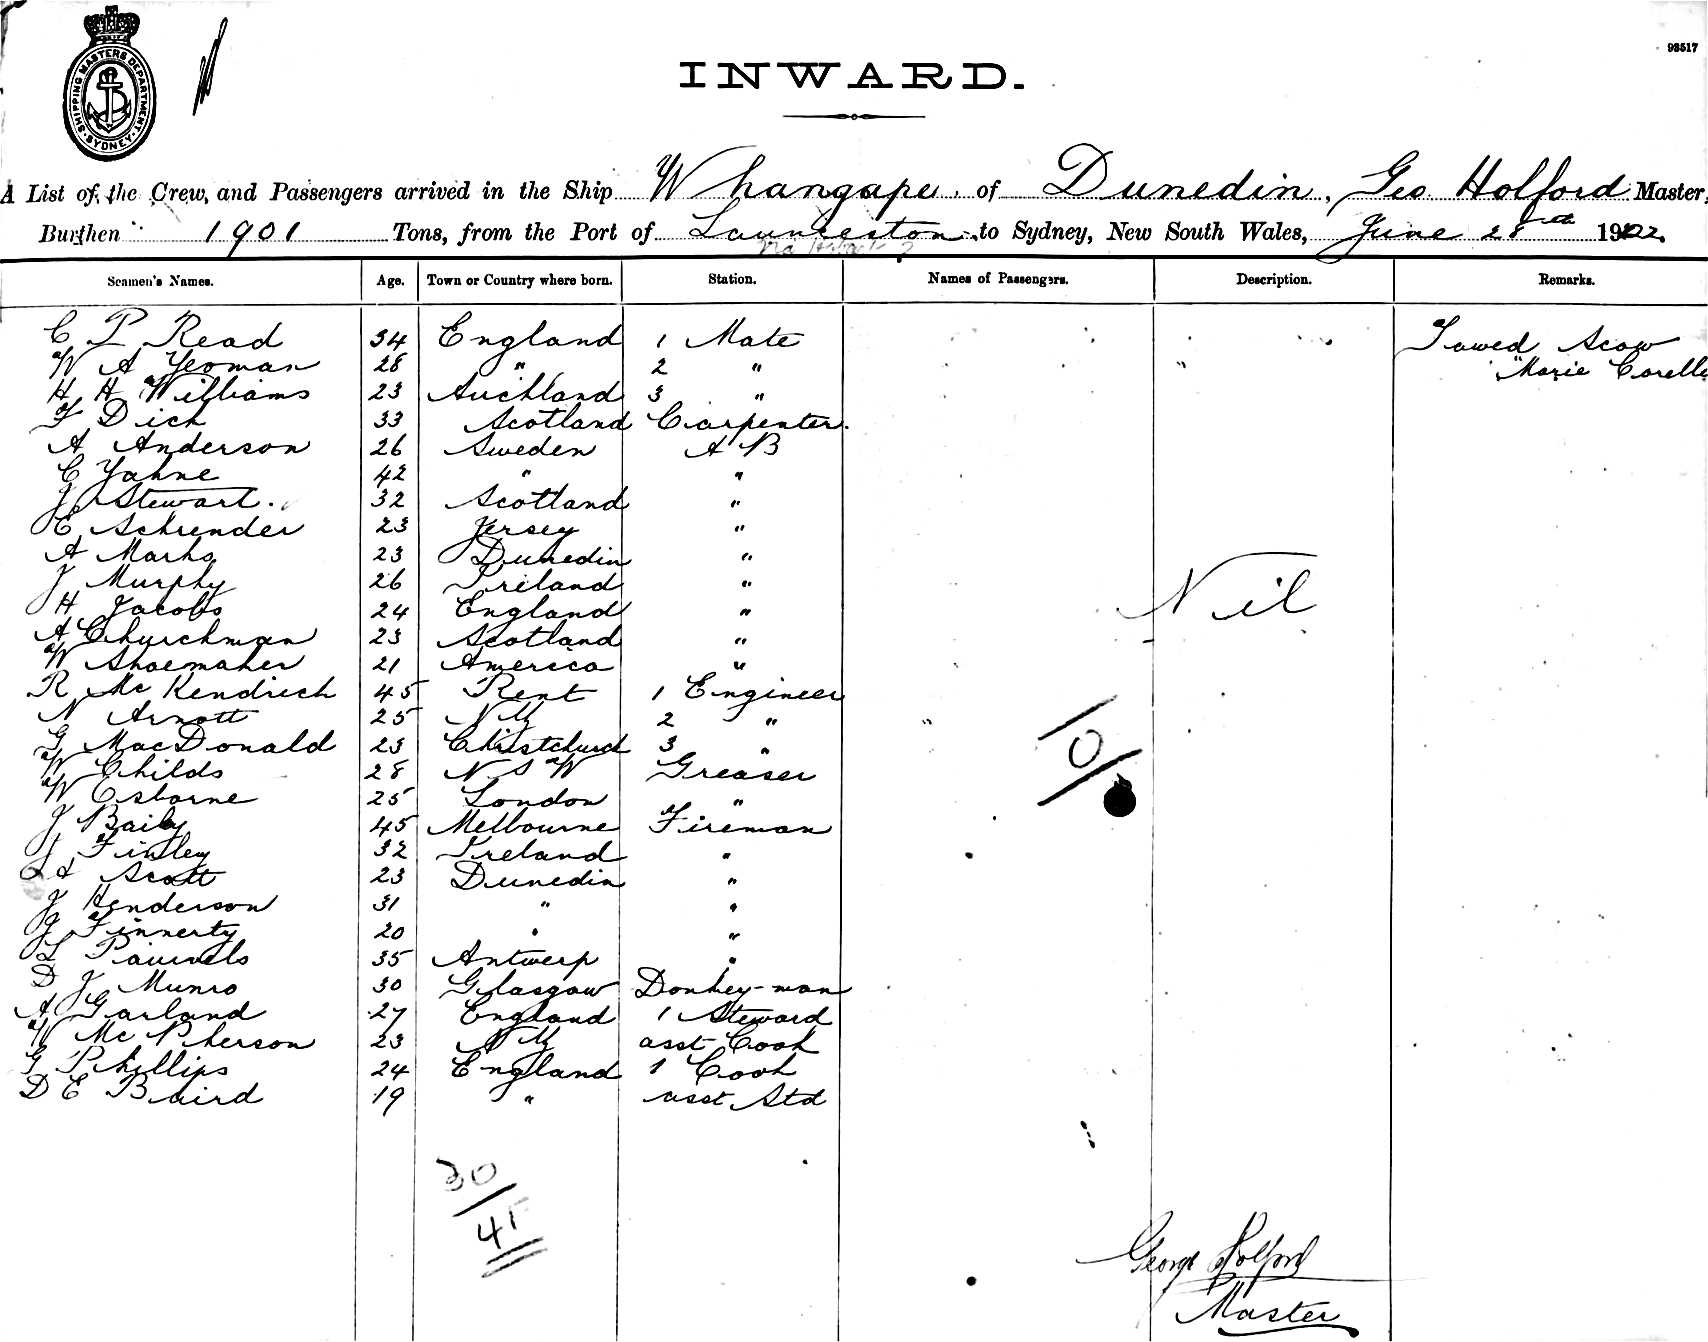 93517
SHIPPING MASTERS DEPARTMENT SYDNEY
INWARD.
A List of the Crew, and Passengers arrived in the Ship Whangape of Dunedin, Geo Holford Master,
Burthen 1901 Tons, from the Port of Launceston to Sydney, New South Wales, June 28 1902
Seamen's Names. Age. Town or Country where born. Station. Names of Passengers. Description. Remarks.
C P Read 34 England 1 Mate Towed Scow
W A Yeoman 28 " 2 " "Marie Corelli
H H Williams 23 Auckland 3 "
F Dick 33 Scotland Carpenter.
A Anderson 26 Sweden A B
C Yahne 42 " "
J Stewart. 32 Scotland "
E Schrender 23 Jersey "
A Marks 23 Dunedin "
J Murphy 26 Ireland "
H Jacobs 24 England "
Nil
A Churchman 23 Scotland "
W Shoemaker 21 America "
R McKendrick 45 Kent 1 Engineer
N Arnott 25 NZ 2 "
G MacDonald 23 Christchurch 3 "
0
W Childs 28 N S W Greaser
W Osborne 25 London "
J Baily 45 Melbourne Fireman
J Finley 32 Ireland "
Scott 23 Dunedin "
J Henderson 31 " "
J Finnerty 20 " "
L Pauwels 35 Antwerp "
D J Munro 30 Glasgow Donkey-man
A Garland 27 England 1 Steward
W McPherson 23 NZ asst Cook
G Phillips 24 England 1 Cook
D E Baird 19 " asst Std
30
41
George Holford
Master